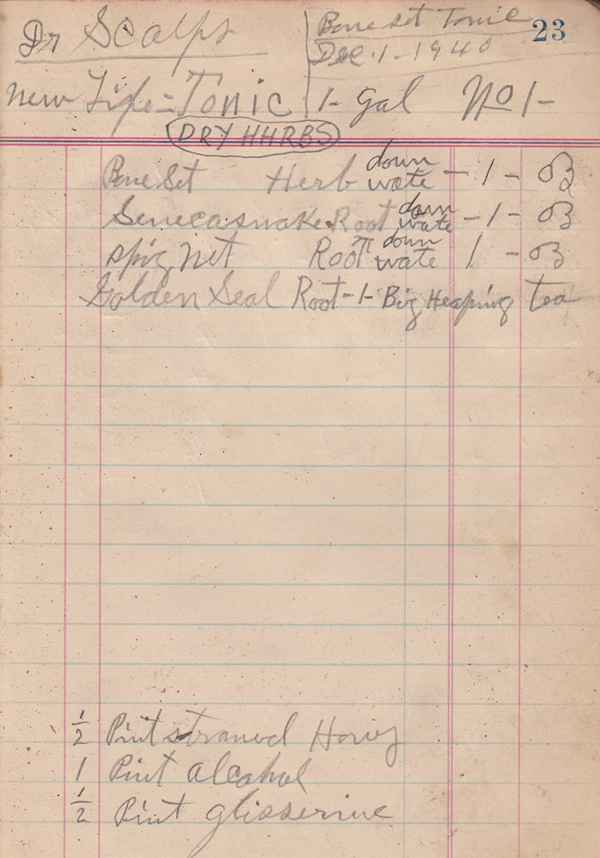 Dr Scalps
Bone Set Tonic
Dec. 1 - 1940
23
New Life = Tonic 1 - Gal No 1 -
DRY HHRBS
Bone Set Herb down wate - 1 - oz
Senecasnake Root down wate - 1 - oz
Spig Net Root down wate 1 - oz
Golden Seal Root - 1 - Big Heaping tea
1/2 Pint straned Honey
1 Pint alcahol
1/2 Pint glisserine